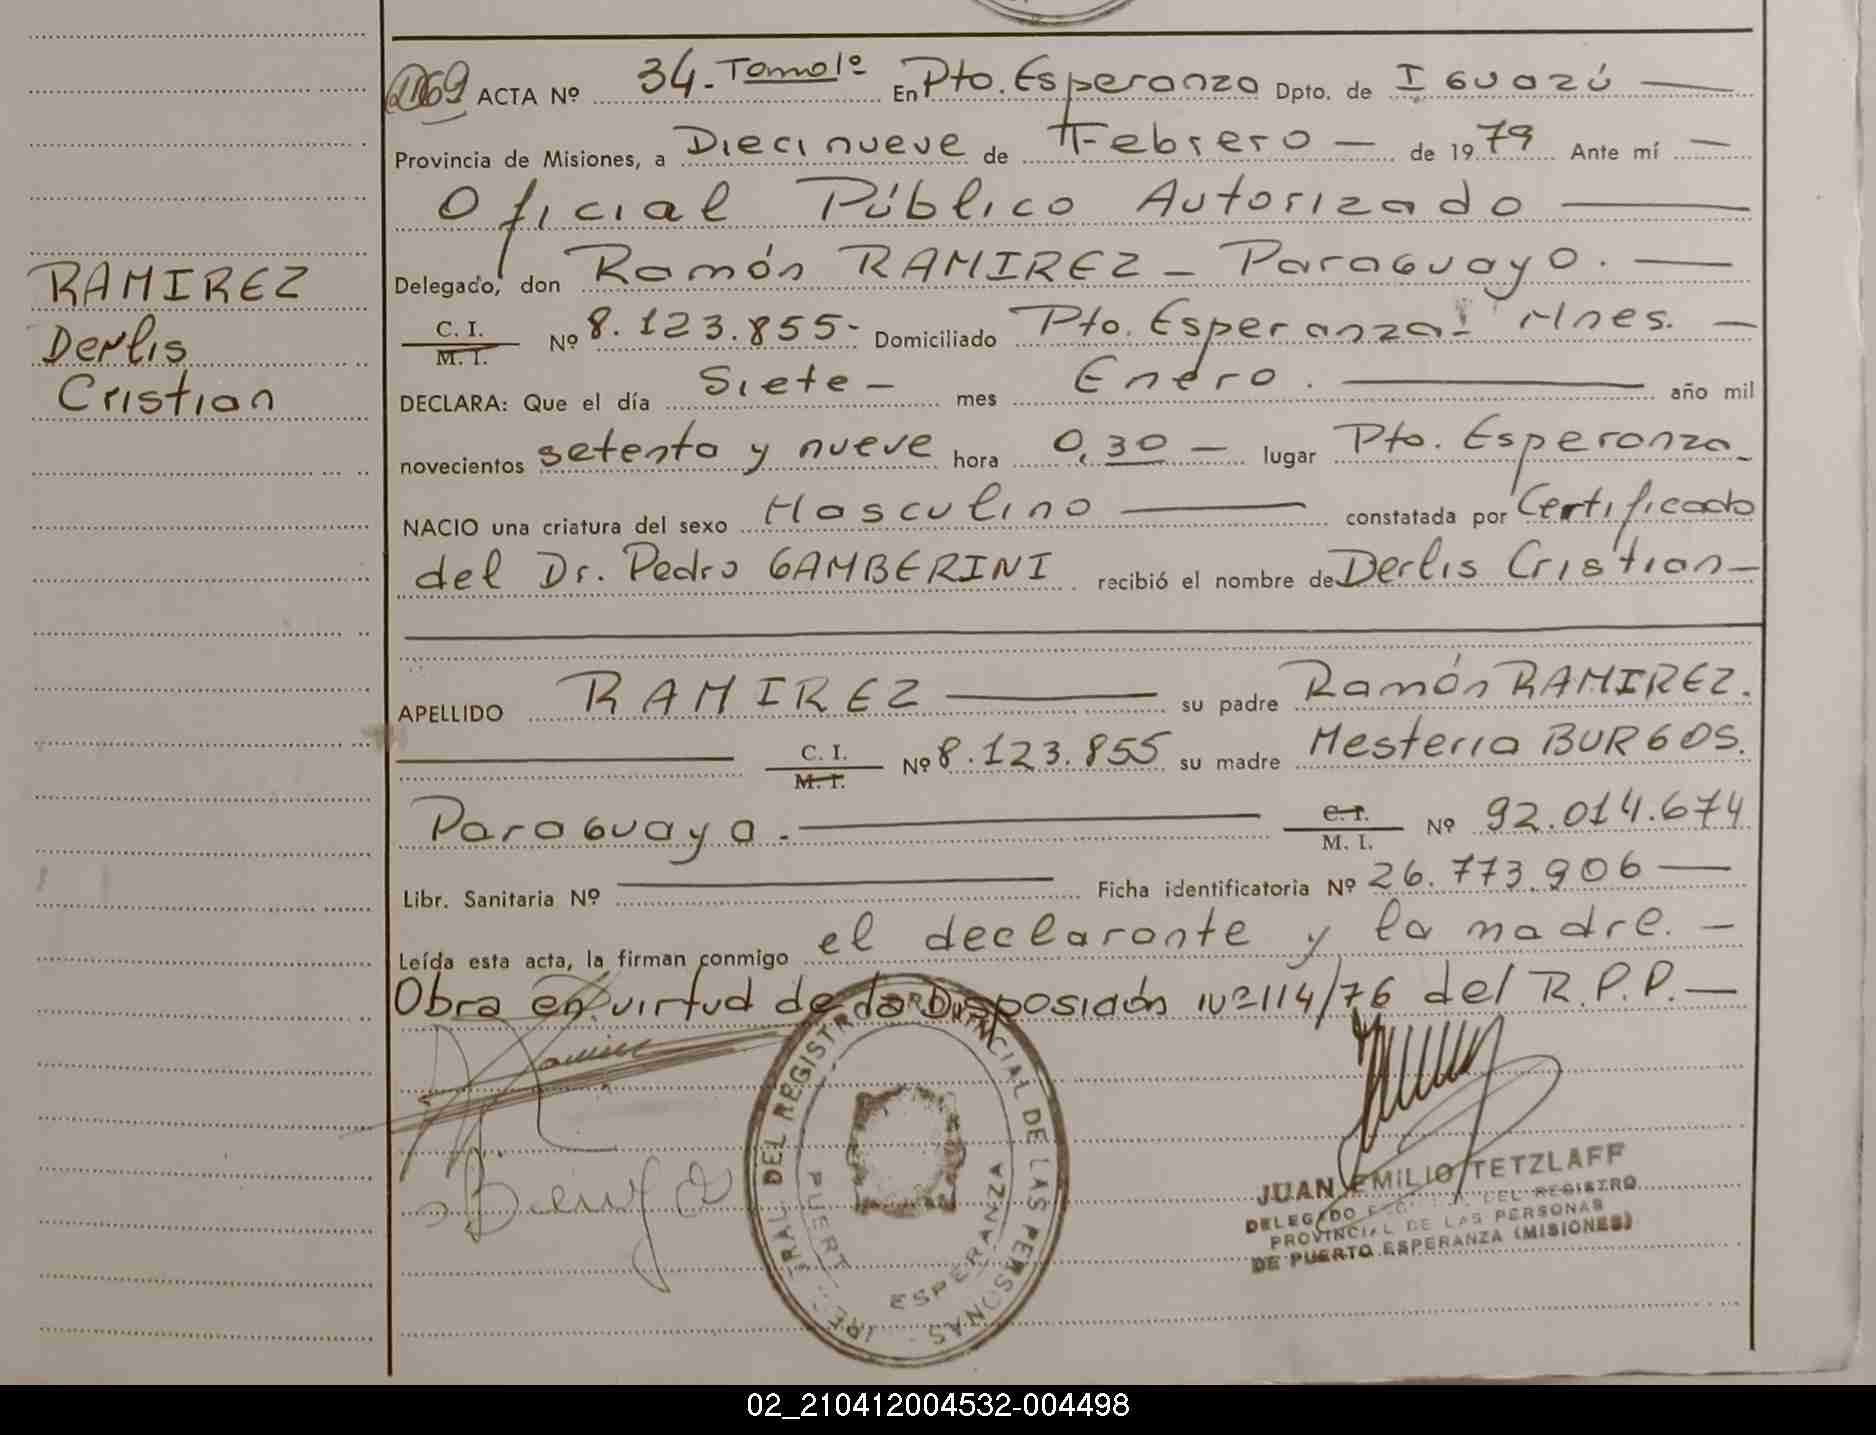 RAMIREZ
Derlis
Cristian
ACTA Nº 34. Tomo 1º En Pto. Esperanza Dpto. de Iguazú
Provincia de Misiones, a Diecinueve de Febrero de 1979 Ante mí
Oficial Público Autorizado
Delegado, don Ramón RAMIREZ - Paraguayo.
C. I. M. I. Nº 8.123.855- Domiciliado Pto. Esperanza - Mnes.
DECLARA: Que el día Siete mes Enero. año mil
novecientos setenta y nueve hora 0,30 lugar Pto. Esperanza
NACIO una criatura del sexo Masculino constatada por Certificado
del Dr. Pedro GAMBERINI recibió el nombre de Derlis Cristian
APELLIDO RAMIREZ su padre Ramón RAMIREZ.
C. I. M. I. Nº 8.123.855 su madre Mesteria BURGOS.
Paraguaya. C. I. M. I. Nº 92.014.674
Libr. Sanitaria Nº Ficha identificatoria Nº 26.773.906
Leída esta acta, la firman conmigo el declarante y la madre.
Obra en virtud de la Disposición Nº 114/76 del R.P.P.
DEL REGISTRO PROVINCIAL DE LAS PERSONAS
ESPERANZA
JUAN EMILIO TETZLAFF
DELEGADO DEL REGISTRO
PROVINCIAL DE LAS PERSONAS
DE PUERTO ESPERANZA (MISIONES)
02_210412004532-004498